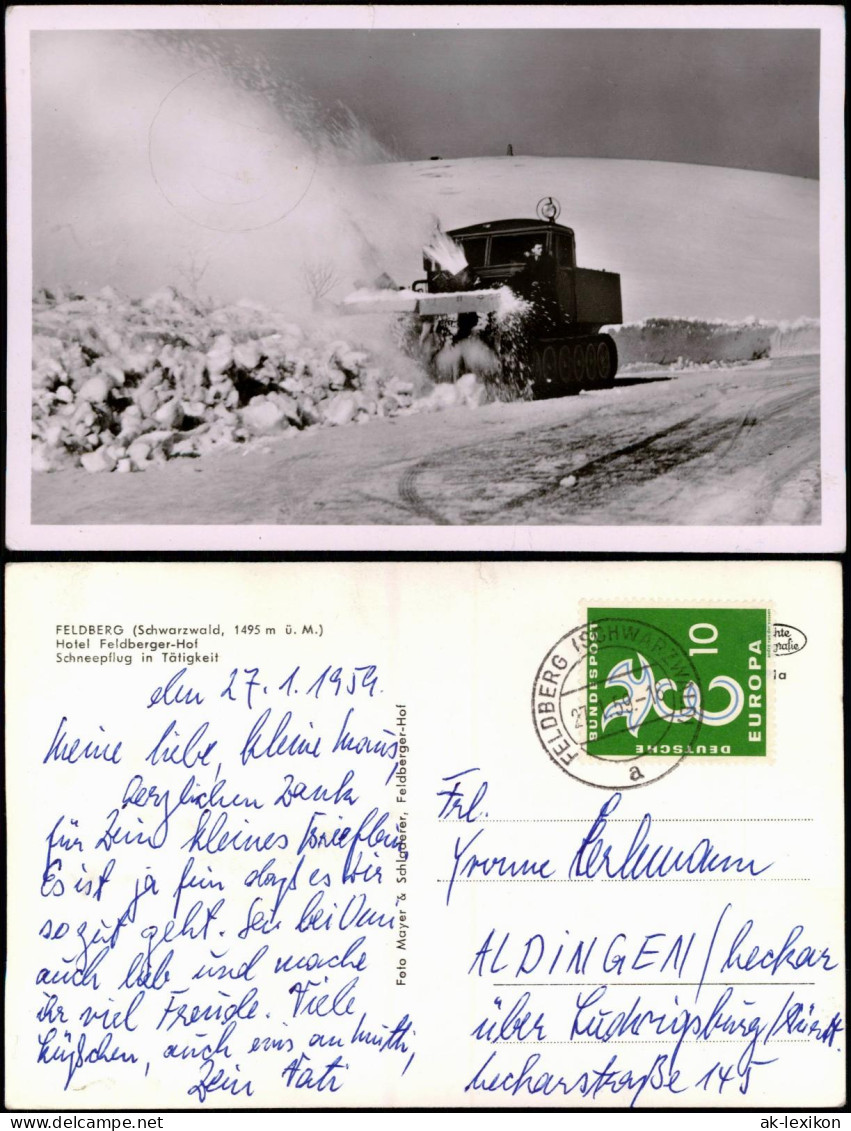 FELDBERG (Schwarzwald, 1495 m ü. M.)
Hotel Feldberger-Hof
Schneepflug in Tätigkeit
den 27.1.1959.
Meine liebe, kleine Maus,
herzlichen Dank
für Dein kleines Brieflein,
Es ist ja fein daß es Dir
so gut geht. Sei bei Omi
auch lieb und mache
ihr viel Freude. Viele
Küßchen, auch eins an Mutti,
Dein Vati
Foto Mayer & Schladerer, Feldberger-Hof
FELDBERG (SCHWARZWALD)
a
DEUTSCHE
BUNDESPOST
10
EUROPA
Frl.
Yvonne
ALDINGEN/Neckar
über Ludwigsburg/Württ.
Neckarstraße 145
ak-lexikon